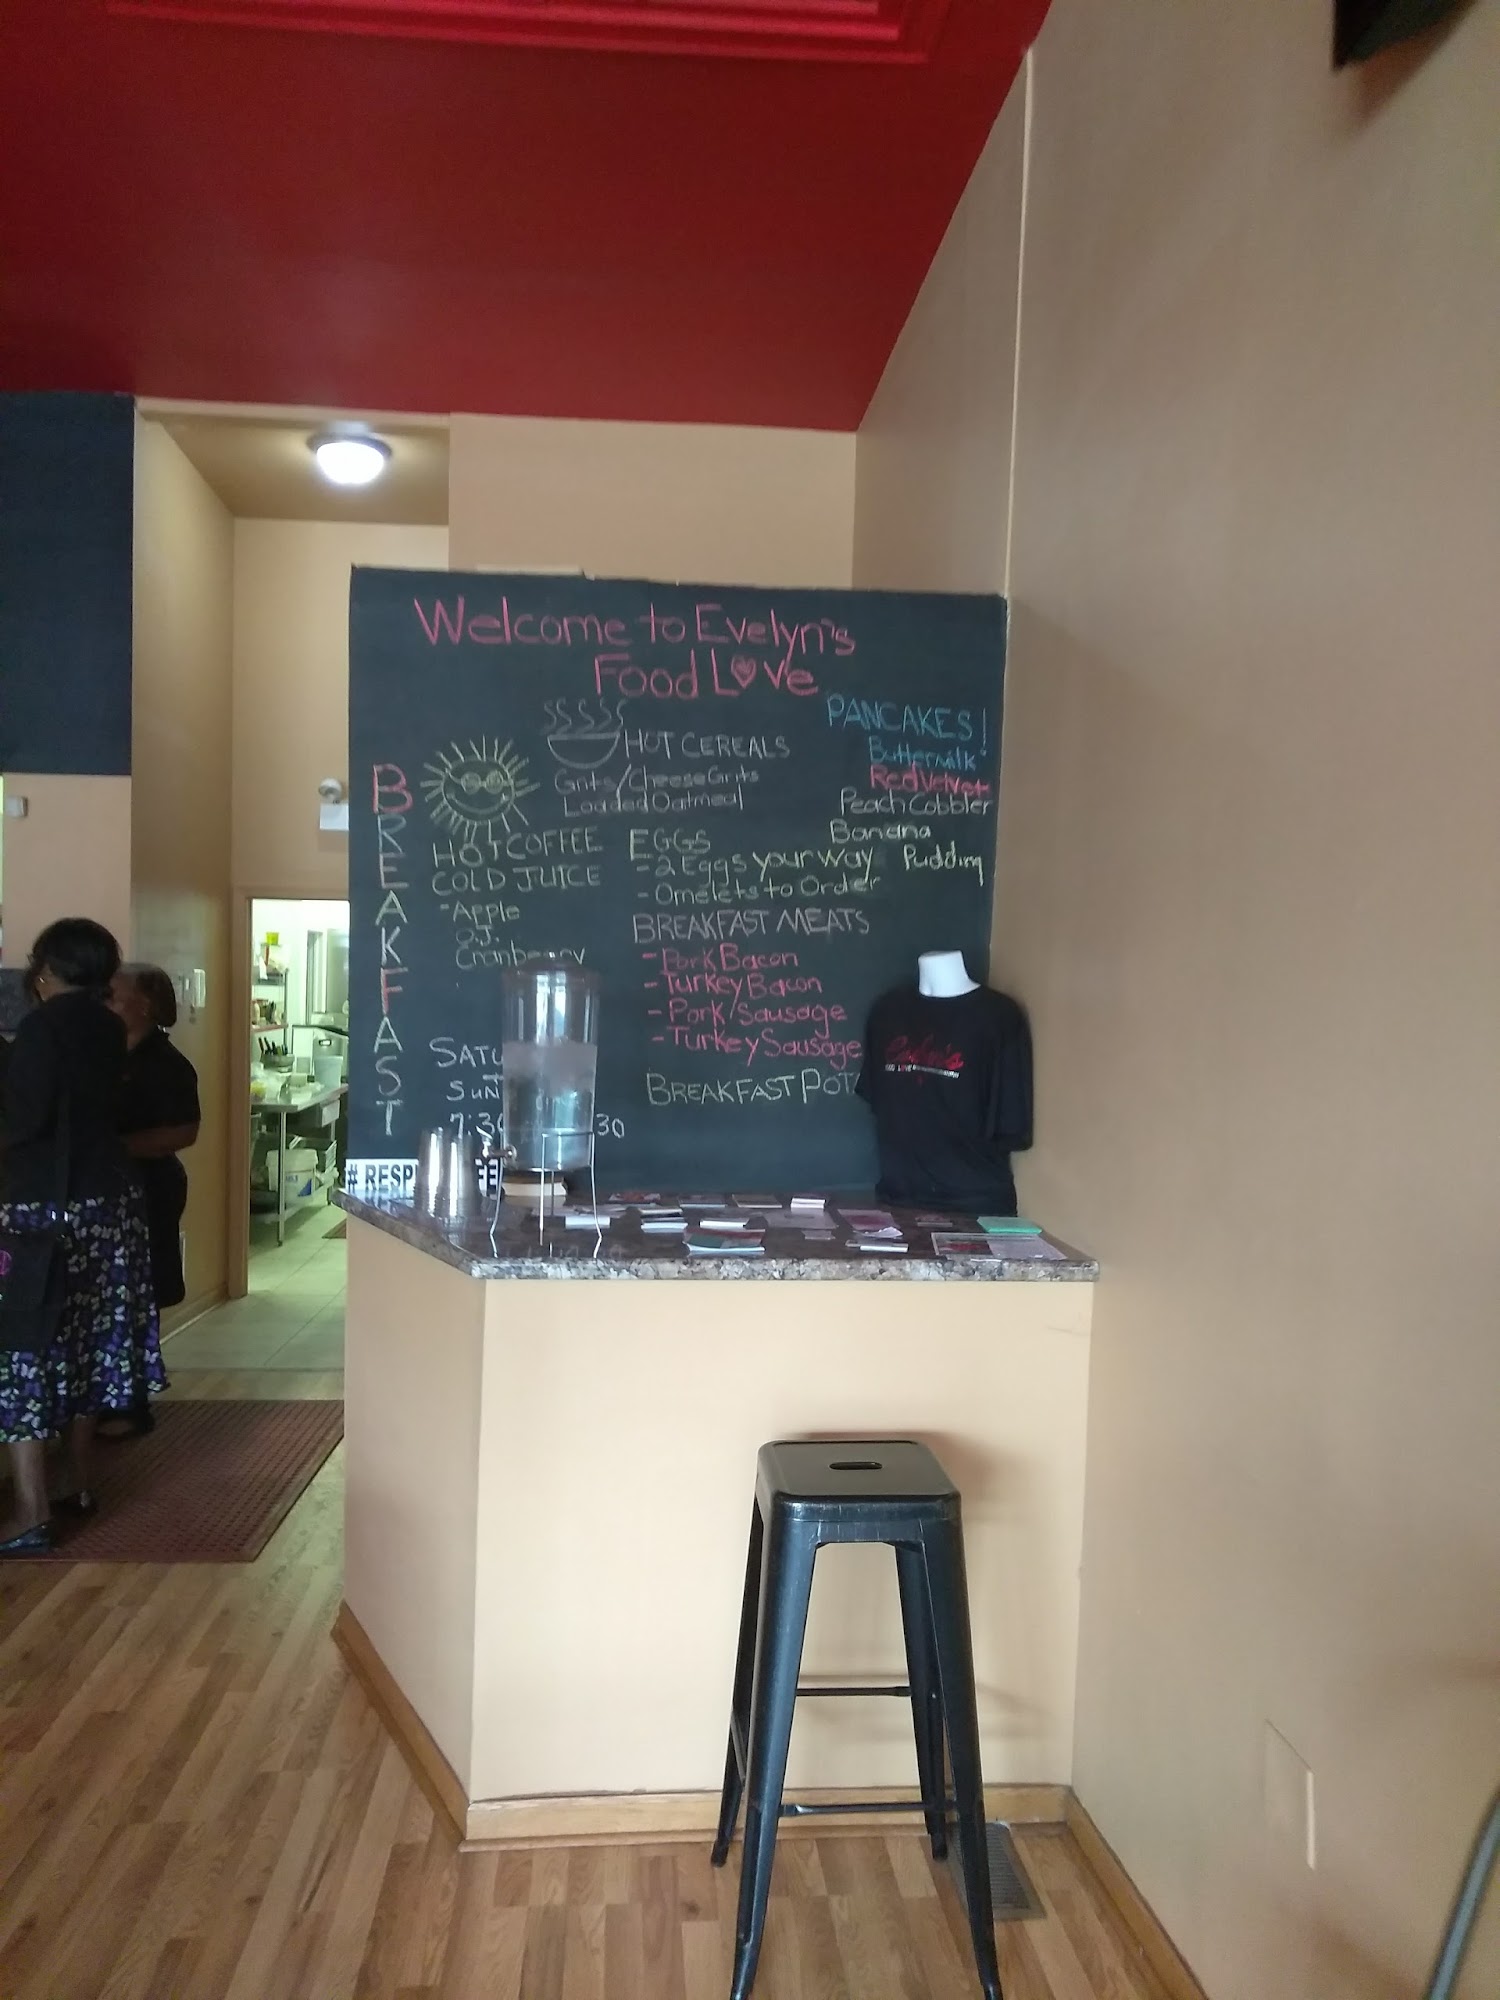 Welcome to Evelyn's
Food Love
BREAKFAST
HOT COFFEE
COLD JUICE
- Apple
O.J.
Cranberry
SATU
SUN
7:30
30
HOT CEREALS
Grits/Cheese Grits
Loaded Oatmeal
EGGS
- 2 Eggs your way
- Omelets to Order
BREAKFAST MEATS
- Pork Bacon
- Turkey Bacon
- Pork Sausage
- Turkey Sausage
BREAKFAST POT
PANCAKES!
Buttermilk
Red Velvet
Peach Cobbler
Banana
Pudding
# RESP